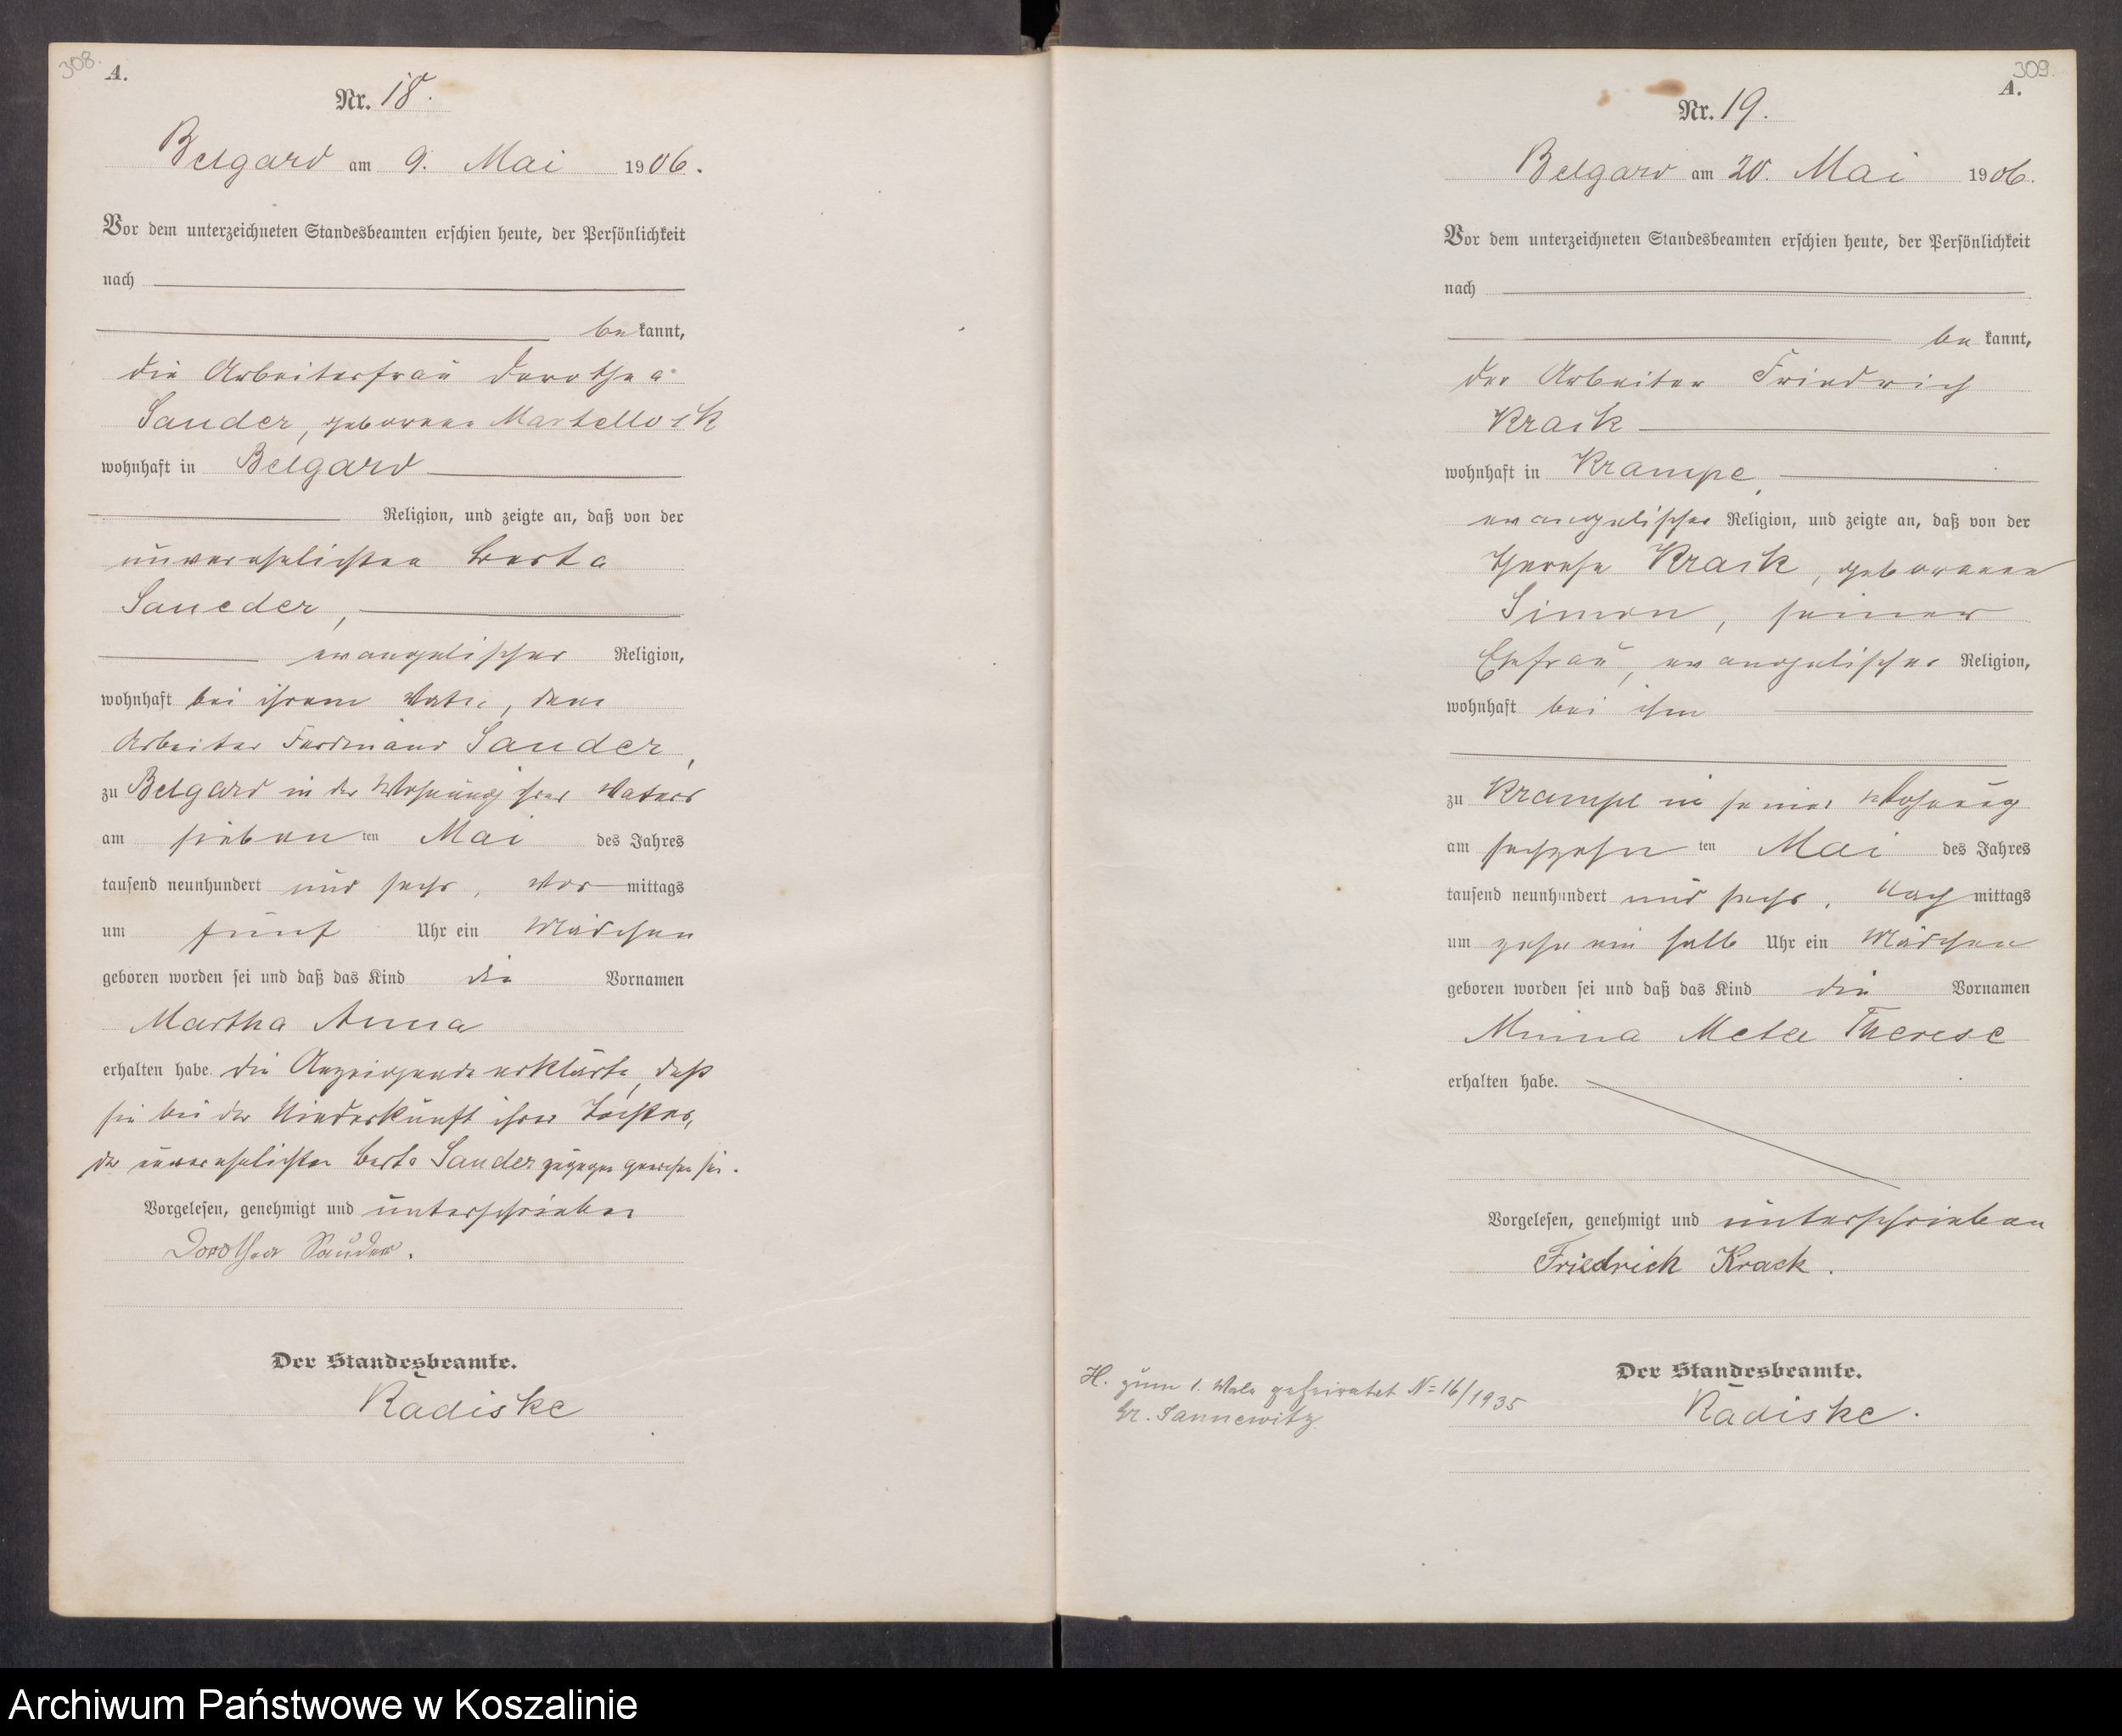 308.
A.
Nr. 18.
Belgard am 9. Mai 1906.
Vor dem unterzeichneten Standesbeamten erschien heute, der Persönlichkeit
nach
be kannt,
die Arbeiterfrau Dorothea
Sander, geborene Martellock
wohnhaft in Belgard
Religion, und zeigte an, daß von der
unverehelichten Berta
Saneder,
evangelischer Religion,
wohnhaft bei ihrem Vater, dem
Arbeiter Ferdinand Sander,
zu Belgard in der Wohnung ihres Vaters
am sieben ten Mai des Jahres
tausend neunhundert und sechs, Vor mittags
um fünf Uhr ein Mädchen
geboren worden sei und daß das Kind die Vornamen
Martha Anna
erhalten habe. Die Anzeigende erklärte, daß
sie bei der Niederkunft ihrer Tochter,
der unverehelichten Berta Sander zugegen gewesen sei.
Vorgelesen, genehmigt und unterschrieben
Dorothea Sander.
Der Standesbeamte.
Radiske
309.
A.
Nr. 19.
Belgard am 20. Mai 1906.
Vor dem unterzeichneten Standesbeamten erschien heute, der Persönlichkeit
nach
be kannt,
der Arbeiter Friedrich
Krack
wohnhaft in Krampe,
evangelischer Religion, und zeigte an, daß von der
Therese Krack, geborenen
Simon, seiner
Ehefrau, evangelischer Religion,
wohnhaft bei ihm
zu Krampe in seiner Wohnung
am sechzehn ten Mai des Jahres
tausend neunhundert und sechs, Nach mittags
um zehn ein halb Uhr ein Mädchen
geboren worden sei und daß das Kind die Vornamen
Minna Meta Therese
erhalten habe.
Vorgelesen, genehmigt und unterschrieben
Friedrich Krack.
Der Standesbeamte.
Radiske.
H. zum 1. Male geheiratet N= 16/1935
Gr. Jannewitz
Archiwum Państwowe w Koszalinie